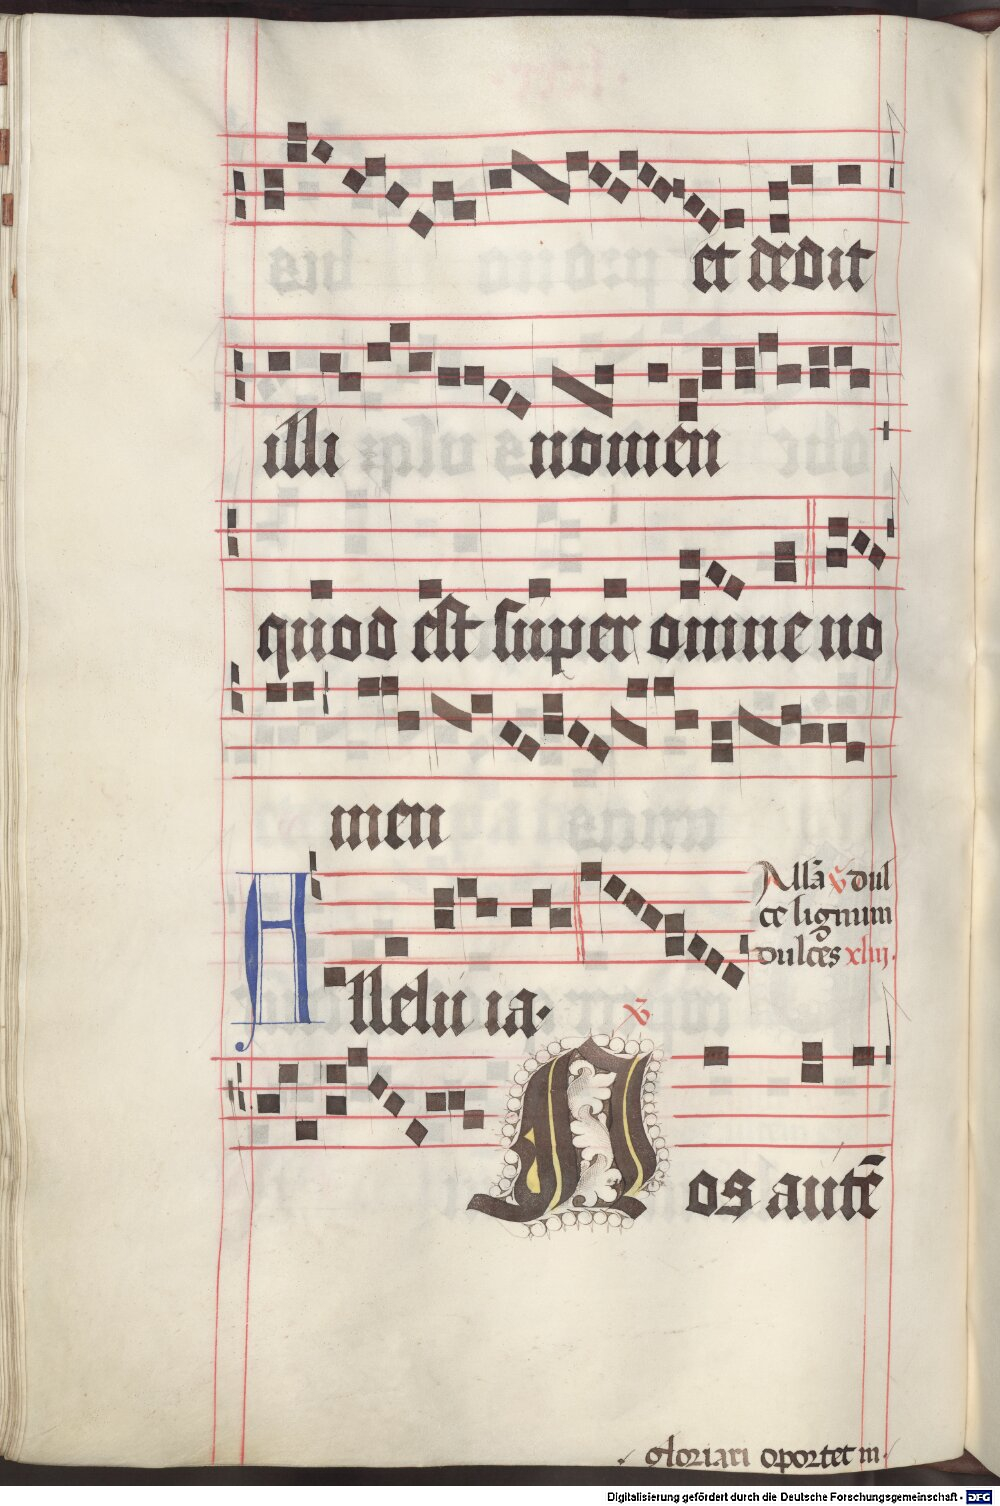 et dedit
illi nomen
quod est super omne no
men
Allelu ia.
Allā ℣ dul
ce lignum
dulces xliij.
℣
Nos autē
gloriari oportet in
Digitalisierung gefördert durch die Deutsche Forschungsgemeinschaft - DFG